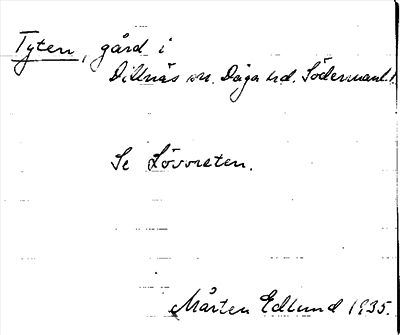 Tyten, gård i
Dillnäs sn. Daga hd. Södermanl.
Se Lövvreten.
Mårten Edlund 1935.